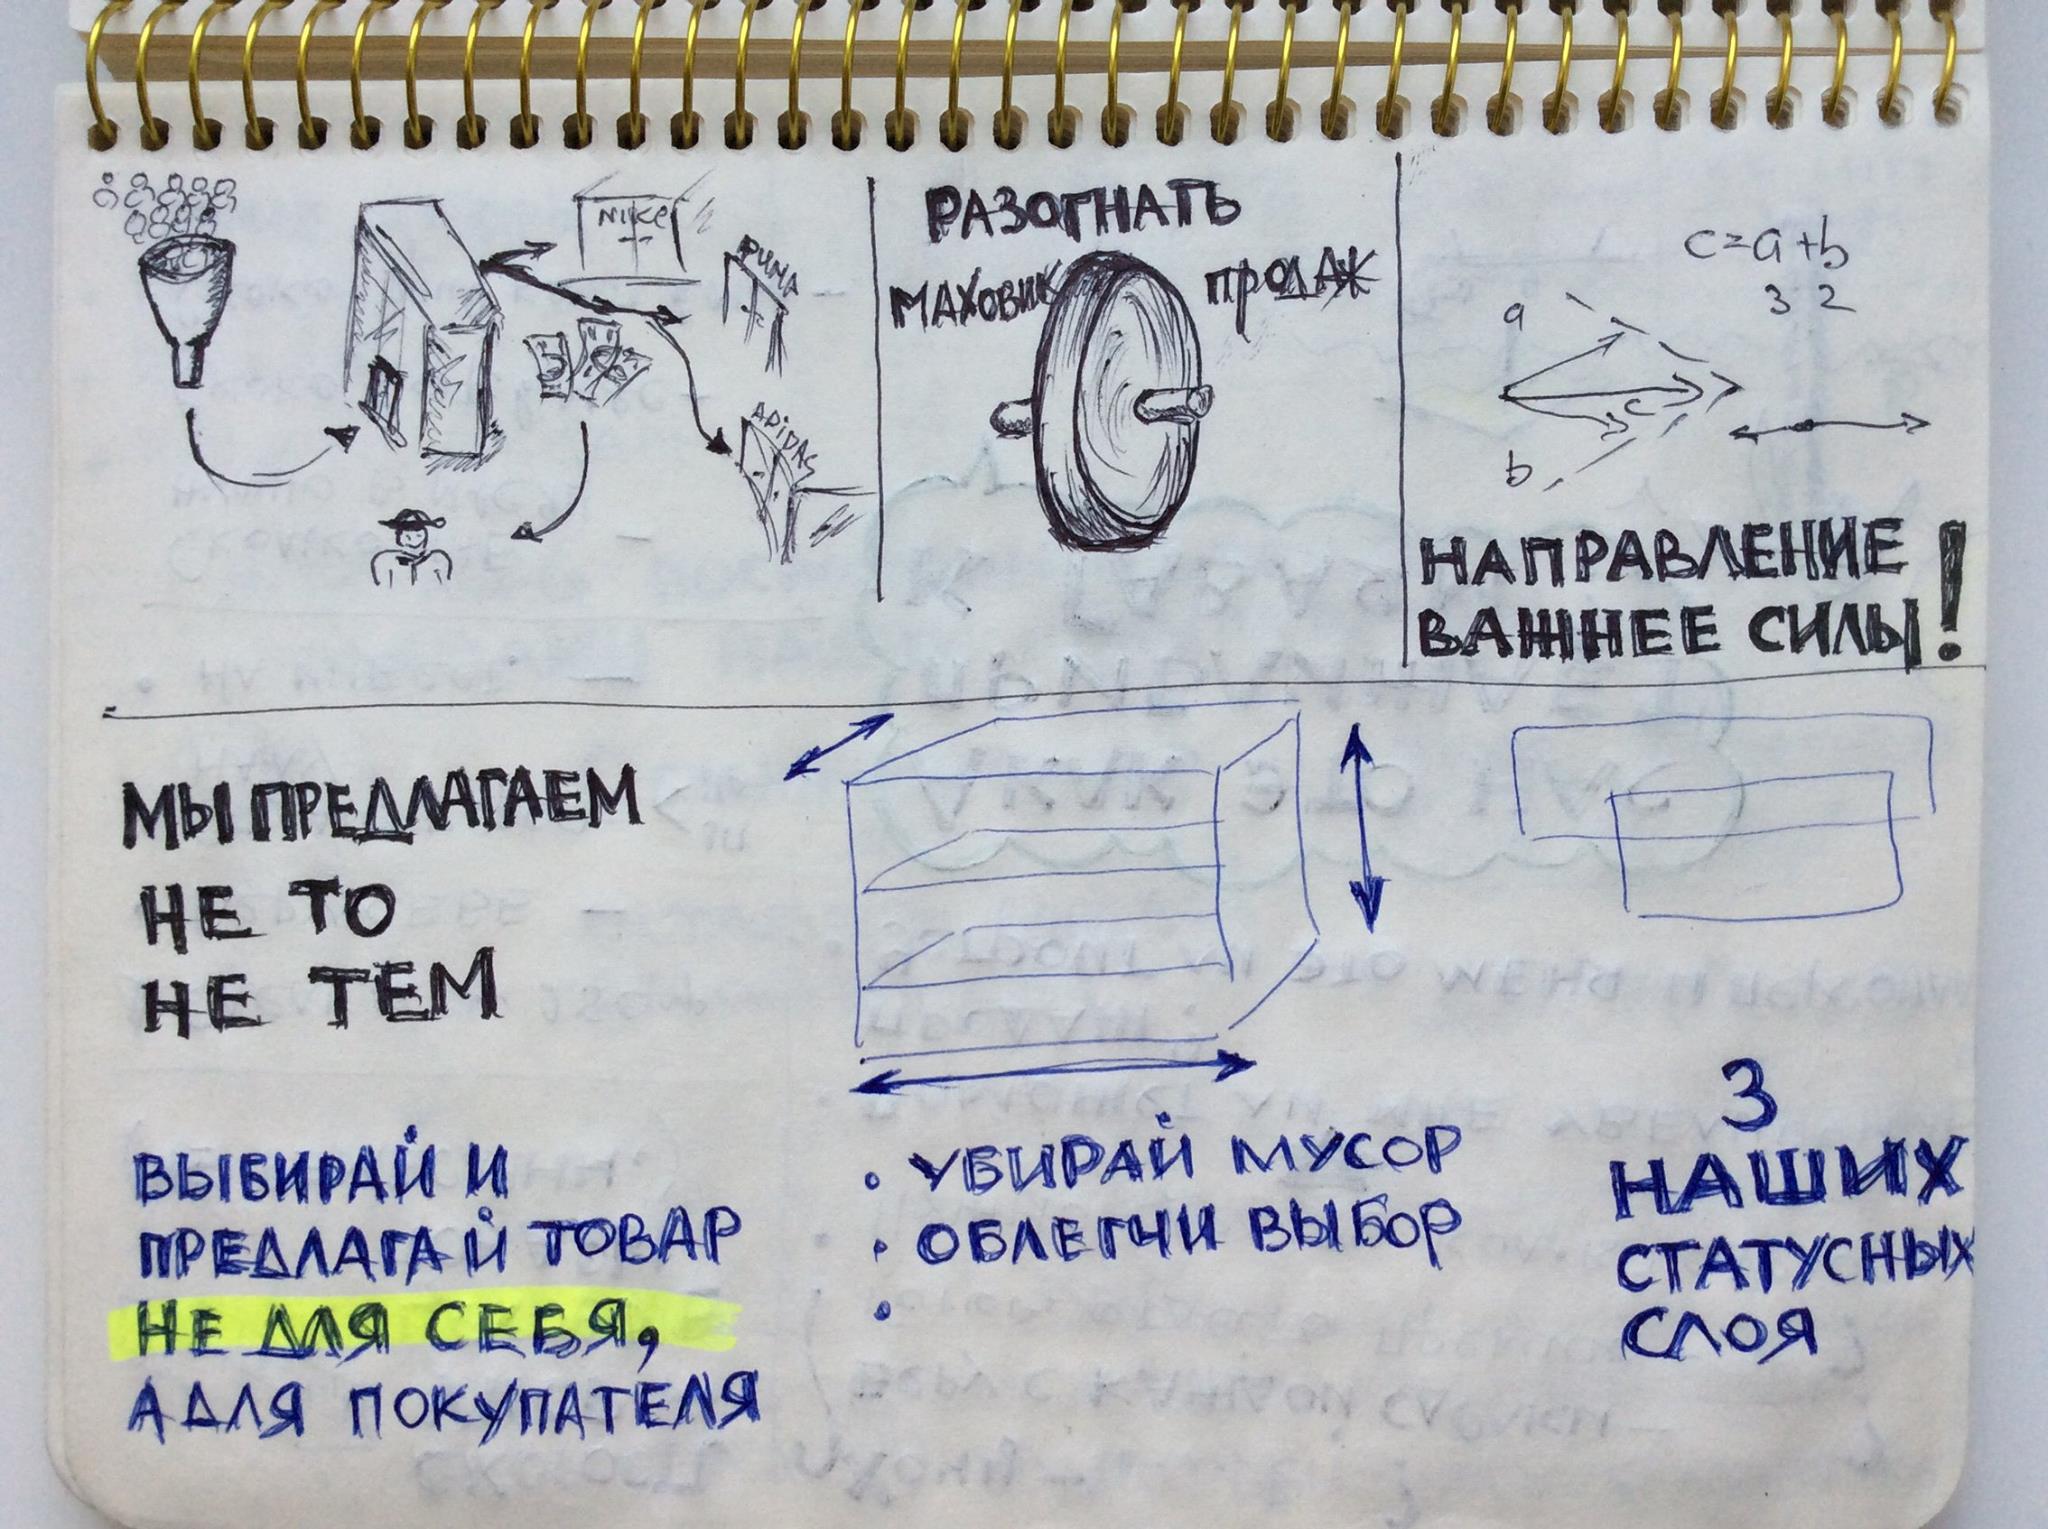 NIKE
PUMA
ADIDAS
РАЗОГНАТЬ
МАХОВИК ПРОДАЖ
c=a+b
3 2
a
c
b
НАПРАВЛЕНИЕ
ВАЖНЕЕ СИЛЫ!
МЫ ПРЕДЛАГАЕМ
НЕ ТО
НЕ ТЕМ
ВЫБИРАЙ И
ПРЕДЛАГАЙ ТОВАР
НЕ ДЛЯ СЕБЯ,
А ДЛЯ ПОКУПАТЕЛЯ
• УБИРАЙ МУСОР
• ОБЛЕГЧИ ВЫБОР
•
3
НАШИХ
СТАТУСНЫХ
СЛОЯ